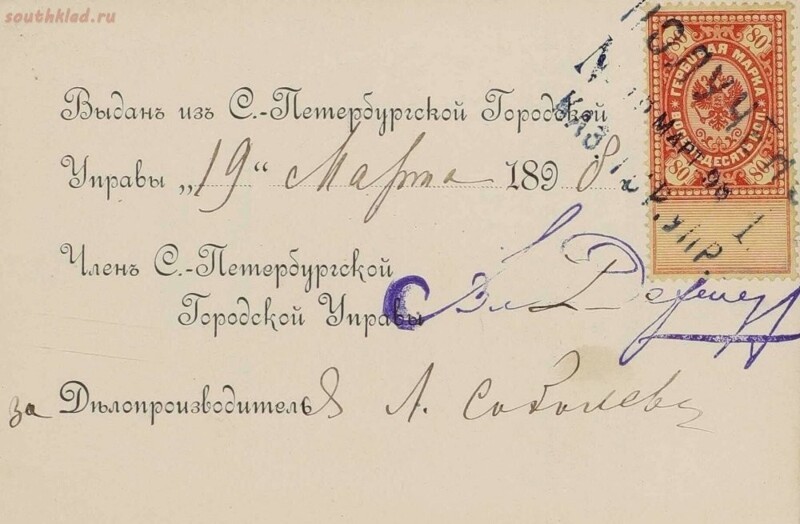 southklad.ru
Выданъ изъ С.-Петербургской Городской
Управы „19“ Марта 1898
Членъ С.-Петербургской
Городской Управы
за Дѣлопроизводителя А. Соболевъ
ГЕРБОВАЯ МАРКА
80 80
80 80
МАРТ. 98